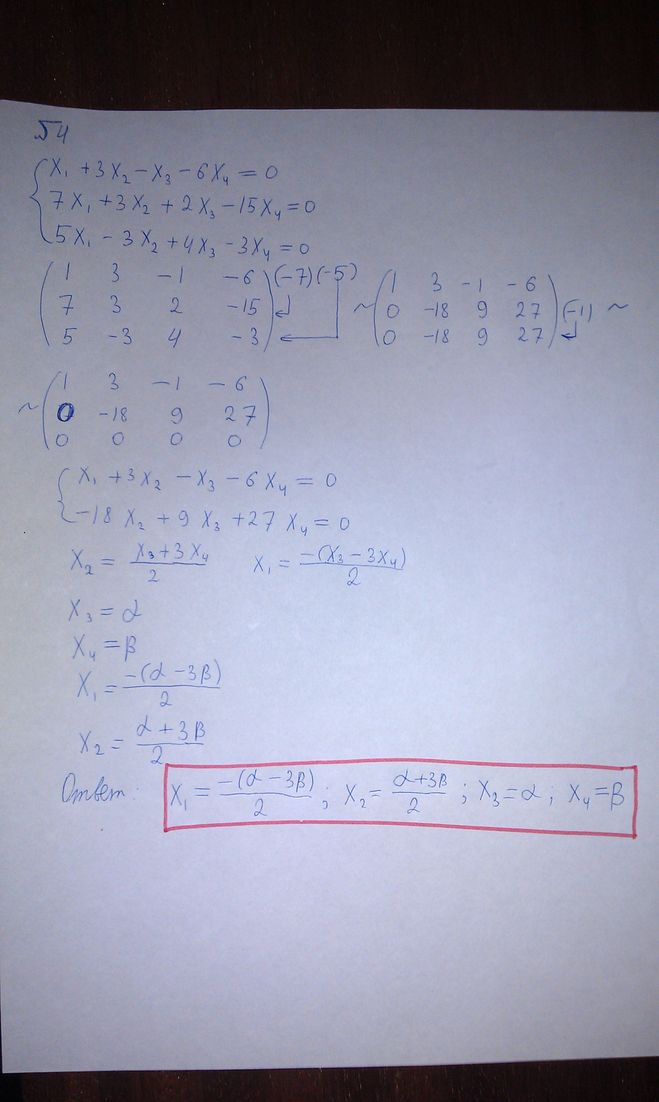 №4
{ x₁ + 3x₂ − x₃ − 6x₄ = 0
7x₁ + 3x₂ + 2x₃ − 15x₄ = 0
5x₁ − 3x₂ + 4x₃ − 3x₄ = 0
( 1 3 −1 −6 ) (−7) (−5)
7 3 2 −15
5 −3 4 −3
~ ( 1 3 −1 −6 )
0 −18 9 27 (−1) ~
0 −18 9 27
~ ( 1 3 −1 −6 )
0 −18 9 27
0 0 0 0
{ x₁ + 3x₂ − x₃ − 6x₄ = 0
−18x₂ + 9x₃ + 27x₄ = 0
x₂ = (x₃ + 3x₄)/2 x₁ = −(x₃ − 3x₄)/2
x₃ = α
x₄ = β
x₁ = −(α − 3β)/2
x₂ = (α + 3β)/2
Ответ: x₁ = −(α − 3β)/2 ; x₂ = (α + 3β)/2 ; x₃ = α ; x₄ = β